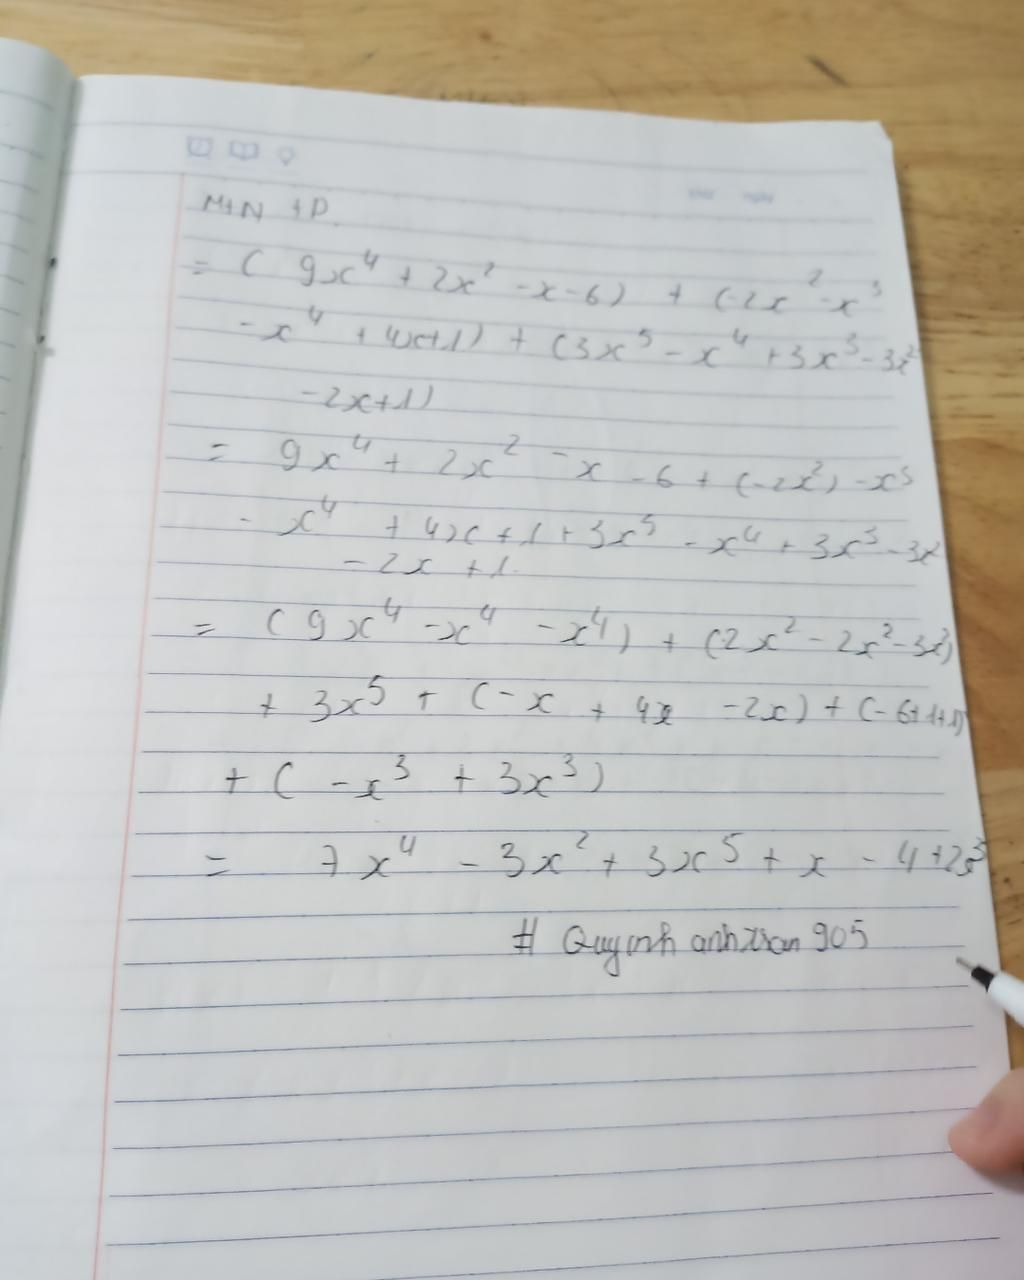 M+N +P
= ( 9x⁴ + 2x² -x-6) + (-2x²-x³
-x⁴ + 4x+1) + (3x⁵ - x⁴ +3x³-3x²
-2x+1)
= 9x⁴ + 2x² -x -6 + (-2x²) -x³
- x⁴ + 4x +1 +3x⁵ - x⁴ + 3x³ -3x²
-2x +1.
= (9x⁴ -x⁴ -x⁴) + (2x² - 2x² -3x²)
+ 3x⁵ + (-x + 4x -2x) + (-6+1+1)
+ ( -x³ + 3x³)
= 7x⁴ - 3x² + 3x⁵ + x - 4 +2x³
# Quynh anhxtran 905